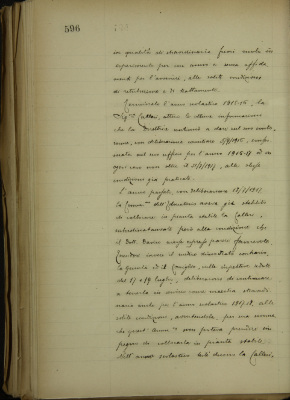 596
in qualità di straordinaria fuori ruolo in
esperimento per un anno e sono affida
mento per l'avvenire, alle solite condizioni
di retribuzione e di trattamento.
Cominciato l'anno scolastico 1915-16, la
Sig.na Callari, attese le ottime informazioni
che la Direttrice continuò a dare sul suo conto,
venne, con deliberazione 5/9/1916, confer
mata nel suo ufficio per l'anno 1916-17 e in
ogni caso non oltre il 31/8/1917, alle stesse
condizioni già praticate.
L'anno passato, con deliberazione 12/7/1917
la Comm.ne dell'Educatorio aveva già stabilito
di collocare in pianta stabile la Callari,
subordinatamente però alla condizione che
il Dott. avesse espresso parere favorevole.
Essendo invece il medico dimostrato contrario,
la Giunta ed il Consiglio, nelle rispettive sedute
del 17 e 19 luglio, deliberarono di continuare
a tenerla in servizio come maestra straordi
naria anche per l'anno scolastico 1917-18, alle
solite condizioni, avvertendola, per una norma
che quest'Amm.ne non poteva prendere im
pegno di collocarla in pianta stabile.
Nell'anno scolastico testé decorso la Callari,